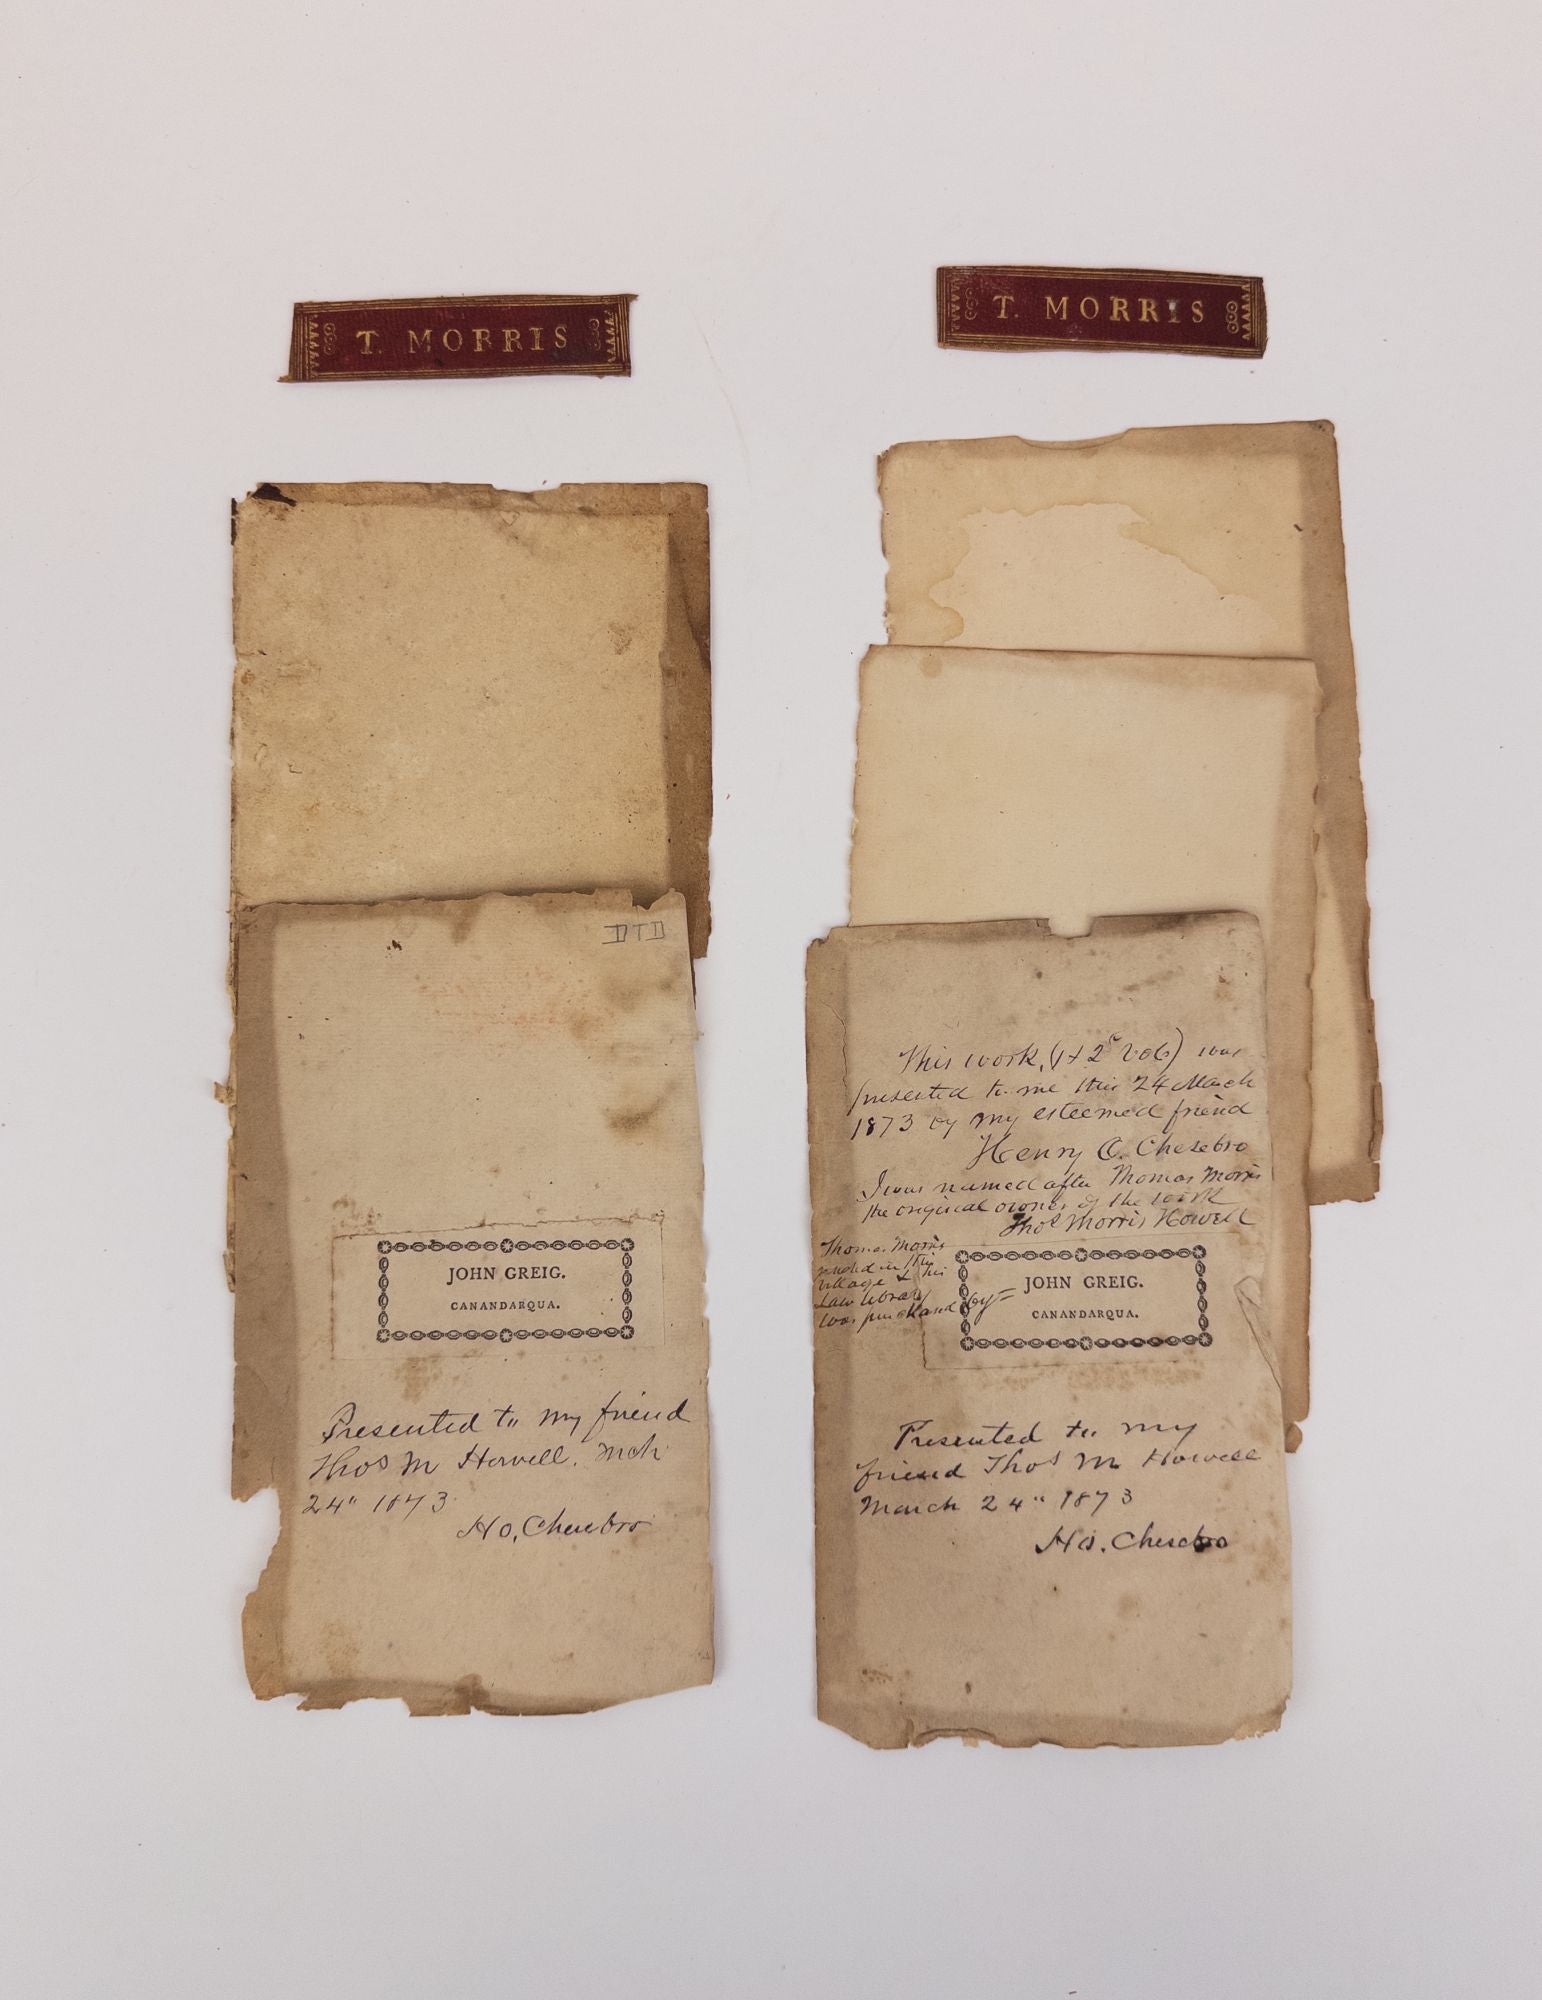 T. MORRIS
JOHN GREIG.
CANANDARQUA.
Presented to my friend
Thos M Howell. Mch
24" 1873
HO, Chesebro
T. MORRIS
This work, (1 & 2d vols) was
presented to me this 24 March
1873 by my esteemed friend
Henry O. Chesebro
I was named after Thomas Morris
the original owner of the work
Thos Morris Howell
Thomas Morris
resided in this
village & his
Law library
was purchased by=
JOHN GREIG.
CANANDARQUA.
Presented to my
friend Thos M Howell
March 24" 1873
HO. Chesebro